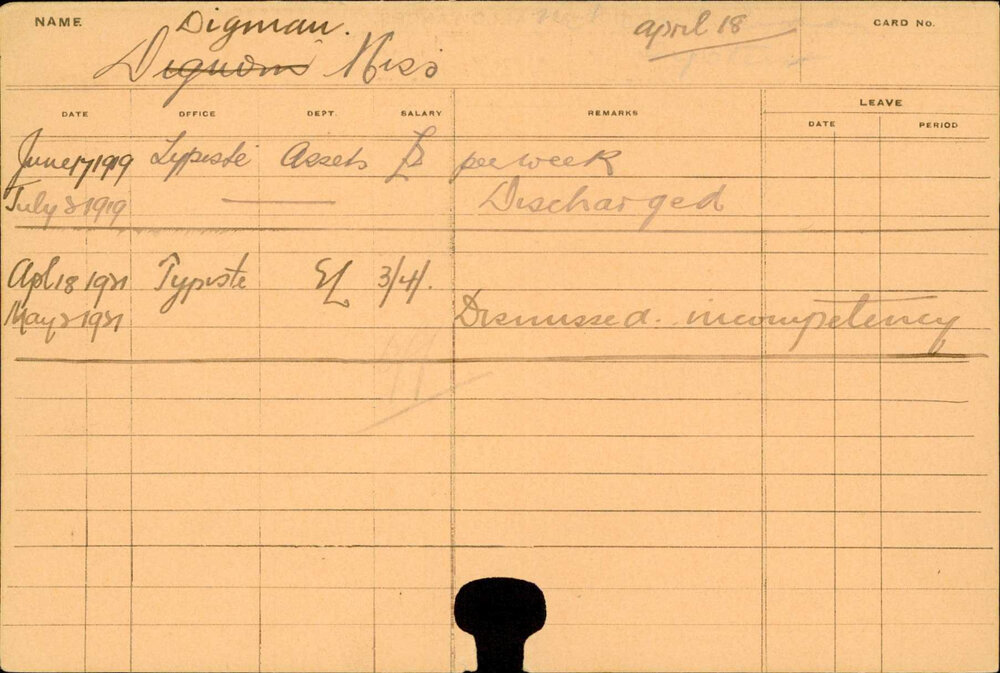 NAME Digman. april 18 CARD No.
Dignam Miss
DATE OFFICE DEPT. SALARY REMARKS LEAVE
DATE PERIOD
June 17 1919 Typiste Assets £3 per week
July 3 1919 Discharged
Apl 18 1921 Typiste EL 3/4/.
May 2 1921 Dismissed. incompetency